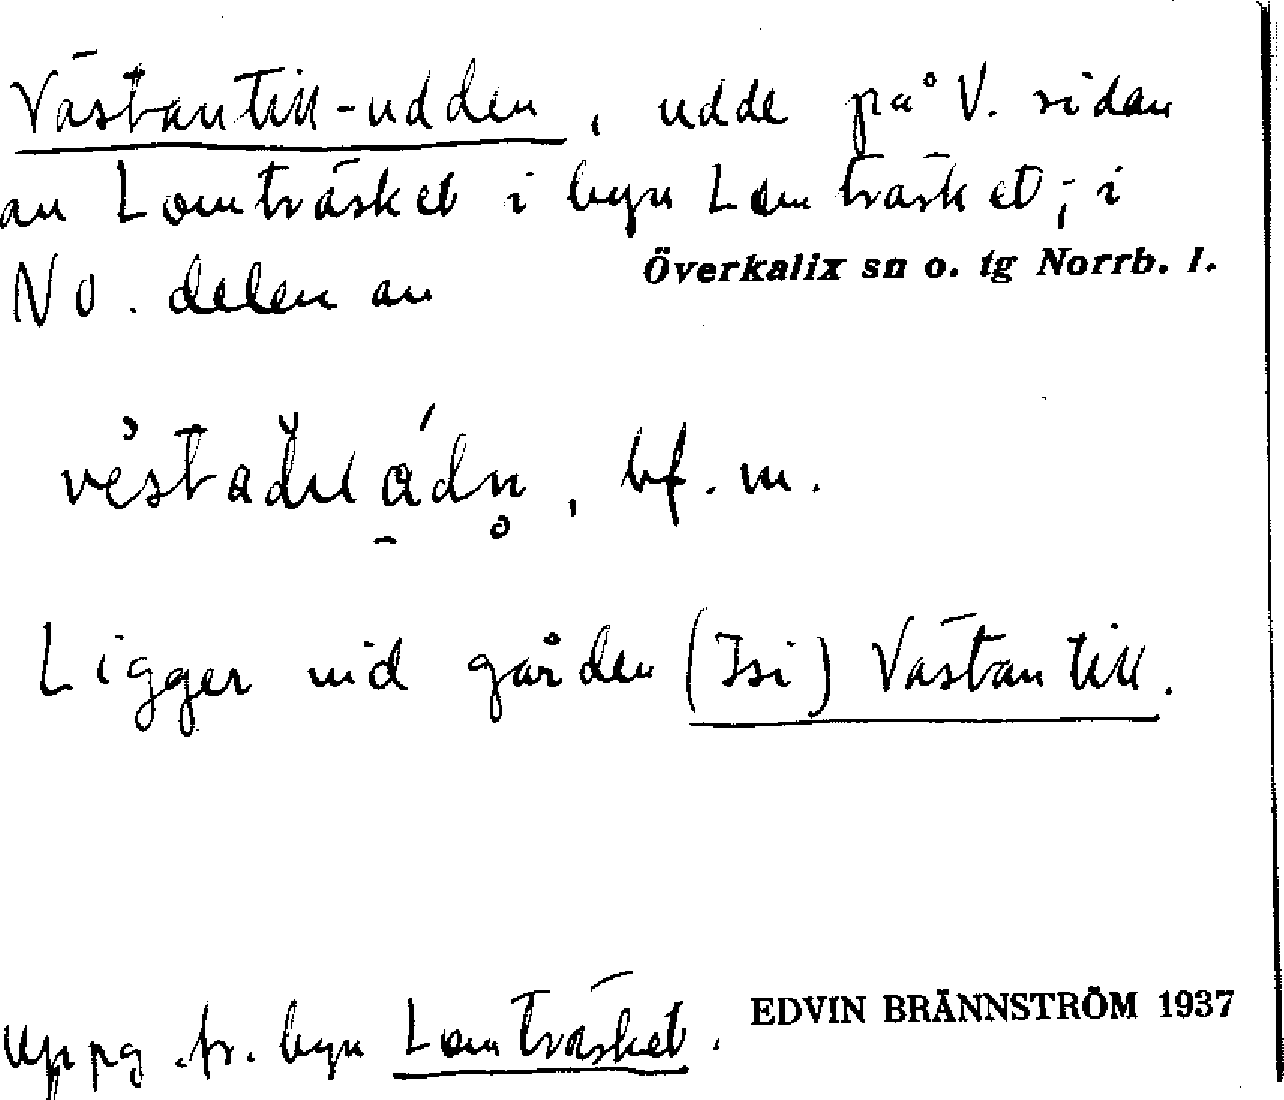 Västantill-udden, udde på V. sidan
av Lomträsket i byn Lomträsket; i
No. delen av Överkalix sn o. tg Norrb. l.
bf. m.
Ligger vid gården (Isi) Västantill.
Uppg. fr. byn Lomträsket.
EDVIN BRÄNNSTRÖM 1937